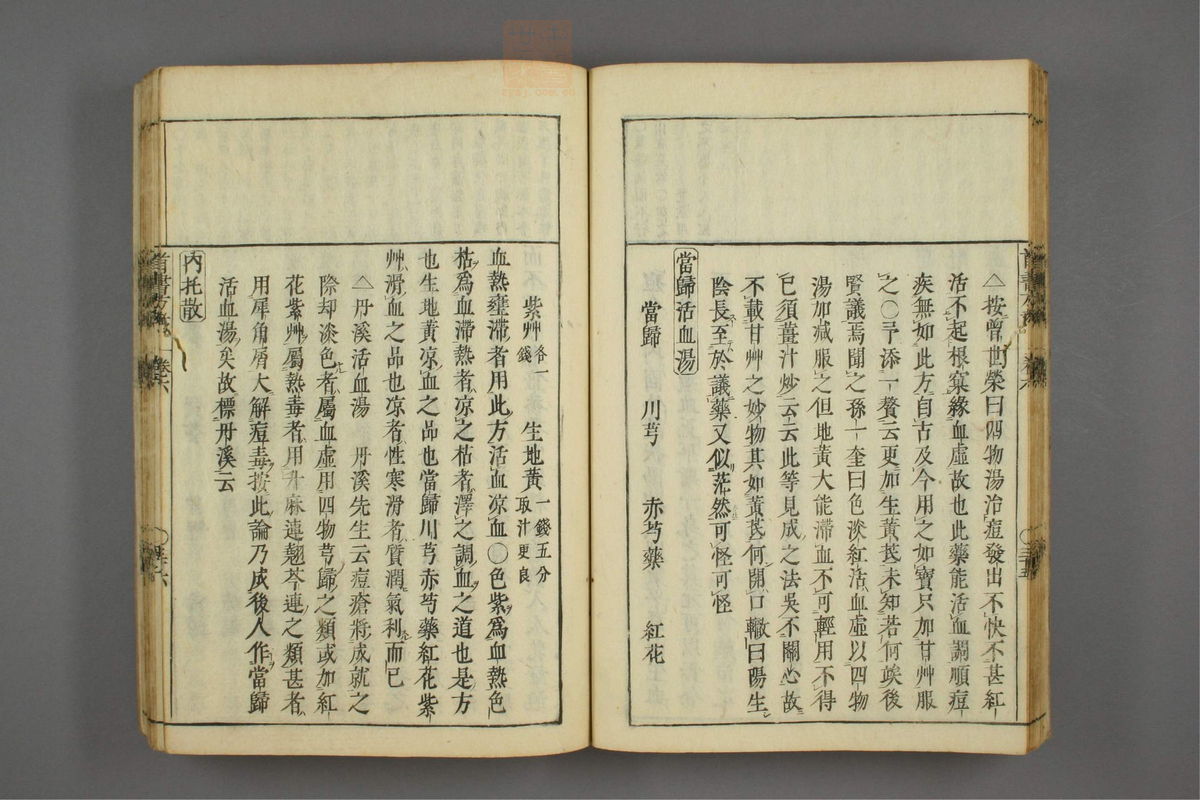 △按曾世榮曰四物湯治痘發出不快不甚紅
活不起根窠緣血虛故也此藥能活血調順痘
疾無如此方自古及今用之如寶只加甘艸服
之〇予添一贅云更加生黃芪未知若何竢後
賢議焉聞之孫一奎曰色淡紅活血虛以四物
湯加減服之但地黃大能滯血不可輕用不得
已須薑汁炒云云此等見成之法吳不關心故
不載甘艸之妙物其如黃芪何開口輙曰陽生
陰長至於議藥又似茫然可怪可怪
當歸活血湯
當歸 川芎 赤芍藥 紅花
紫艸各一錢 生地黃一錢五分取汁更良
血熱壅滯者用此方活血凉血〇色紫爲血熱色
枯爲血滯熱者凉之枯者澤之調血之道也是方
也生地黃凉血之品也當歸川芎赤芍藥紅花紫
艸滑血之品也凉者性寒滑者質潤氣利而已
△丹溪活血湯 丹溪先生云痘瘡將成就之
際却淡色者屬血虛用四物芎歸之類或加紅
花紫艸屬熱毒者用升麻連翹芩連之類甚者
用犀角屑大解痘毒按此論乃成後人作當歸
活血湯矣故標丹溪云
內托散